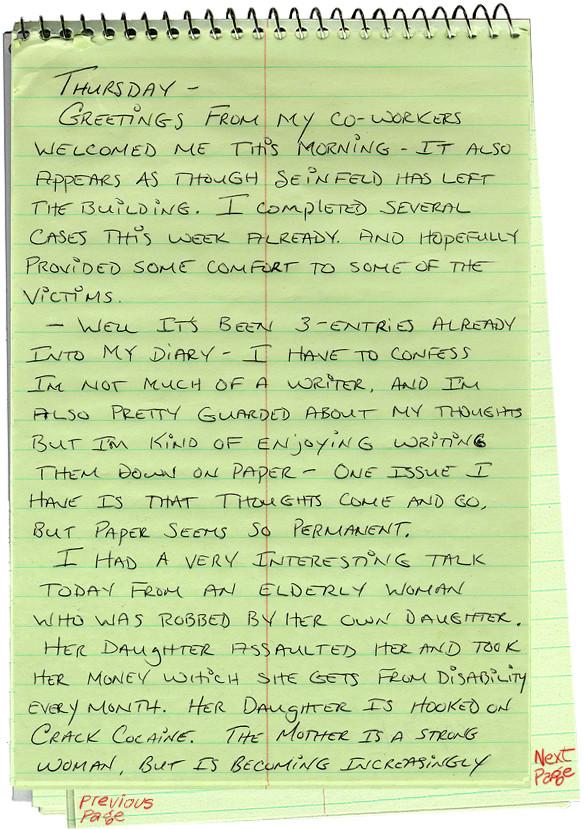 THURSDAY -
GREETINGS FROM MY CO-WORKERS
WELCOMED ME THIS MORNING - IT ALSO
APPEARS AS THOUGH SEINFELD HAS LEFT
THE BUILDING. I COMPLETED SEVERAL
CASES THIS WEEK ALREADY. AND HOPEFULLY
PROVIDED SOME COMFORT TO SOME OF THE
VICTIMS.
- WELL IT'S BEEN 3-ENTRIES ALREADY
INTO MY DIARY - I HAVE TO CONFESS
I'M NOT MUCH OF A WRITER, AND I'M
ALSO PRETTY GUARDED ABOUT MY THOUGHTS
BUT I'M KIND OF ENJOYING WRITING
THEM DOWN ON PAPER - ONE ISSUE I
HAVE IS THAT THOUGHTS COME AND GO,
BUT PAPER SEEMS SO PERMANENT.
I HAD A VERY INTERESTING TALK
TODAY FROM AN ELDERLY WOMAN
WHO WAS ROBBED BY HER OWN DAUGHTER.
HER DAUGHTER ASSAULTED HER AND TOOK
HER MONEY WHICH SHE GETS FROM DISABILITY
EVERY MONTH. HER DAUGHTER IS HOOKED ON
CRACK COCAINE. THE MOTHER IS A STRONG
WOMAN, BUT IS BECOMING INCREASINGLY
Next
Page
Previous
Page